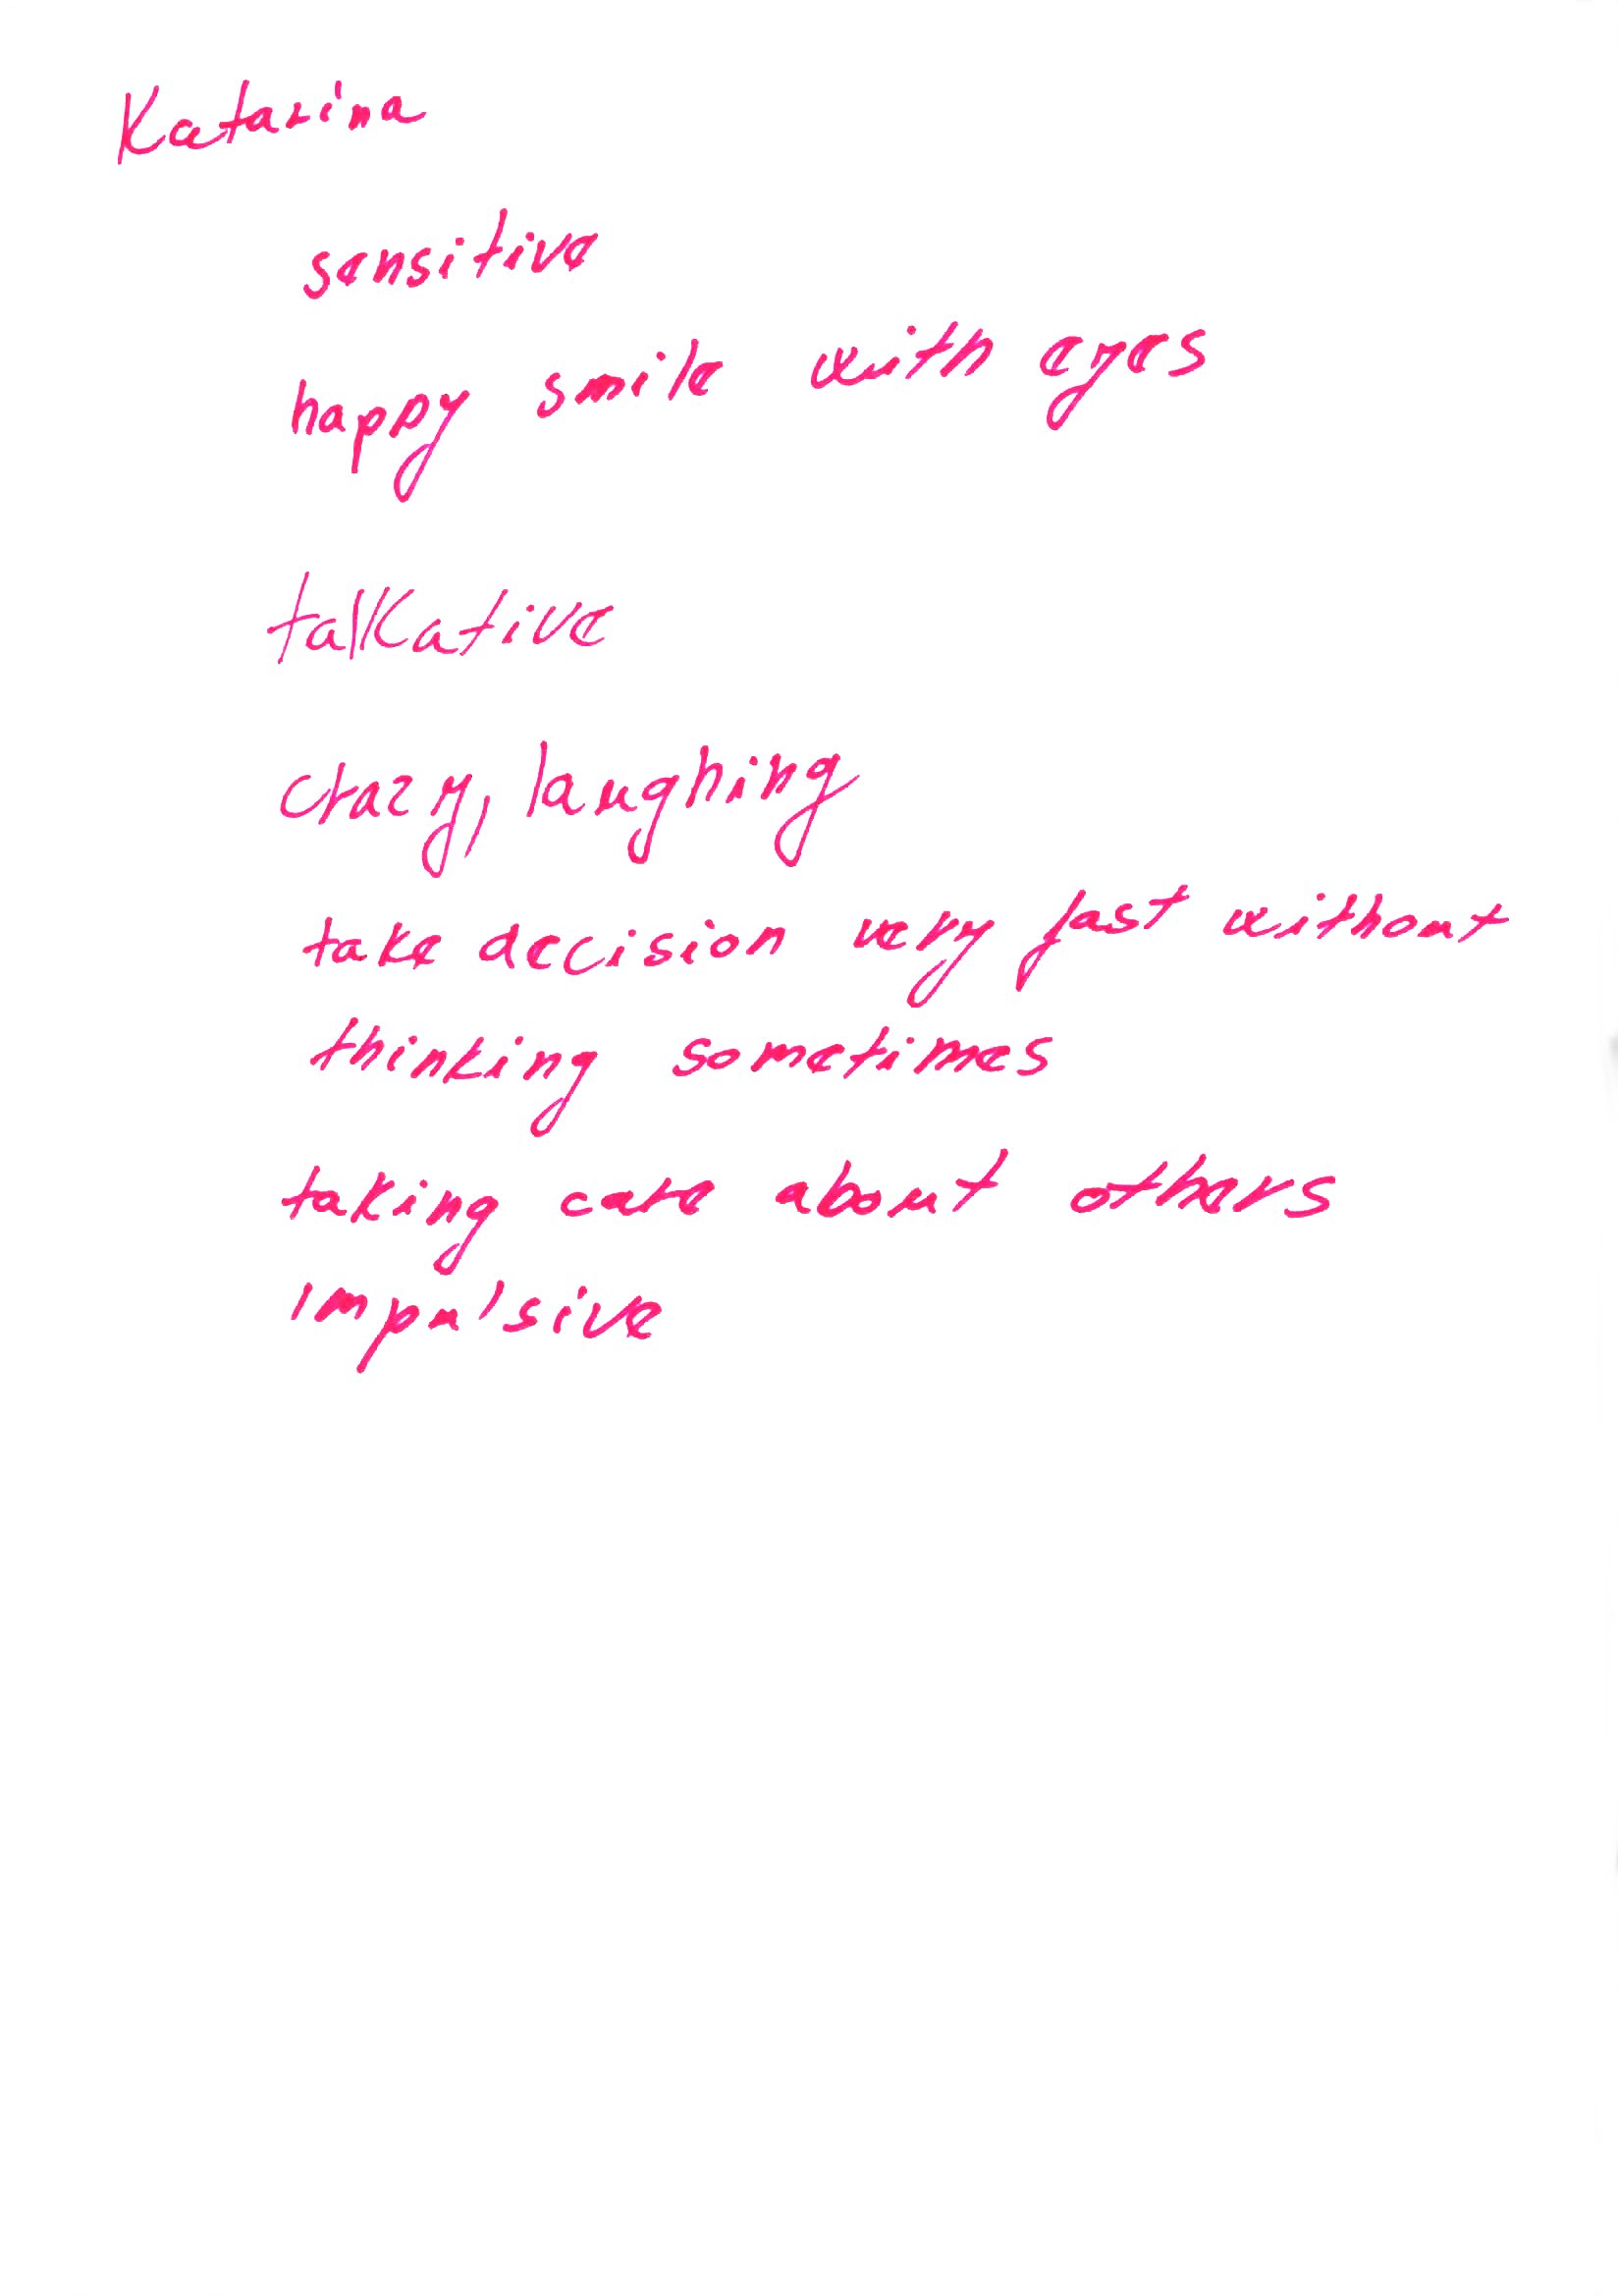 Katarina
sensitive
happy smile with eyes
talkative
crazy, laughing
take decision very fast without
thinking sometimes
taking care about others
impulsive